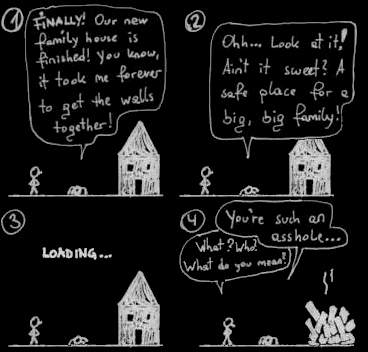 1
FINALLY! Our new
family house is
finished! You know,
it took me forever
to get the walls
together!
2
Ohh... Look at it!
Ain't it sweet? A
safe place for a
big, big family!
3
LOADING...
4
You're such an
asshole...
What? Who?
What do you mean?